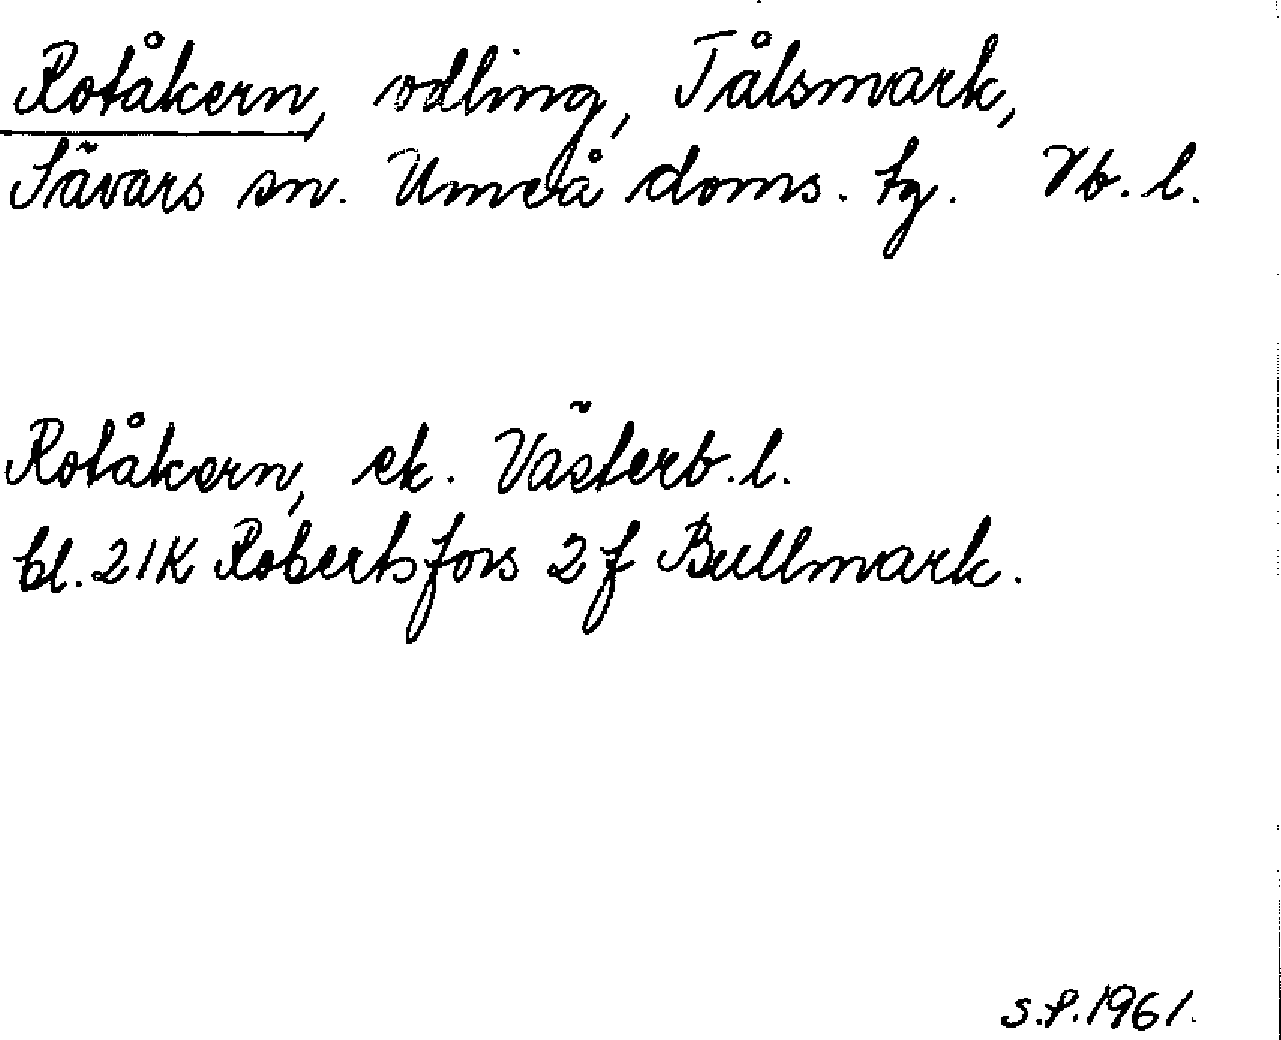 Rotåkern, odling, Tålsmark,
Sävars sn. Umeå doms. tg. Vb. l.
Rotåkern, ek. Västerb. l.
bl. 21K Robertsfors 2 f Bullmark.
S.P. 1961.